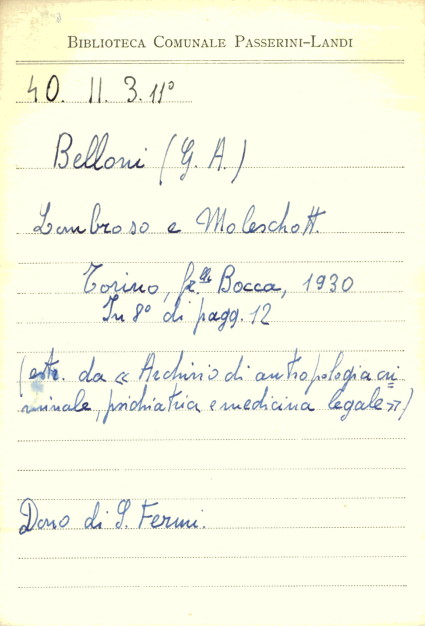 BIBLIOTECA COMUNALE PASSERINI-LANDI
40. II. 3. 11°
Belloni (G. A.)
Lombroso e Moleschott.
Torino, fr.lli Bocca, 1930
In 8° di pagg. 12
(estr. da « Archivio di antropologia cri=
minale, psichiatria e medicina legale »)
Dono di S. Fermi.